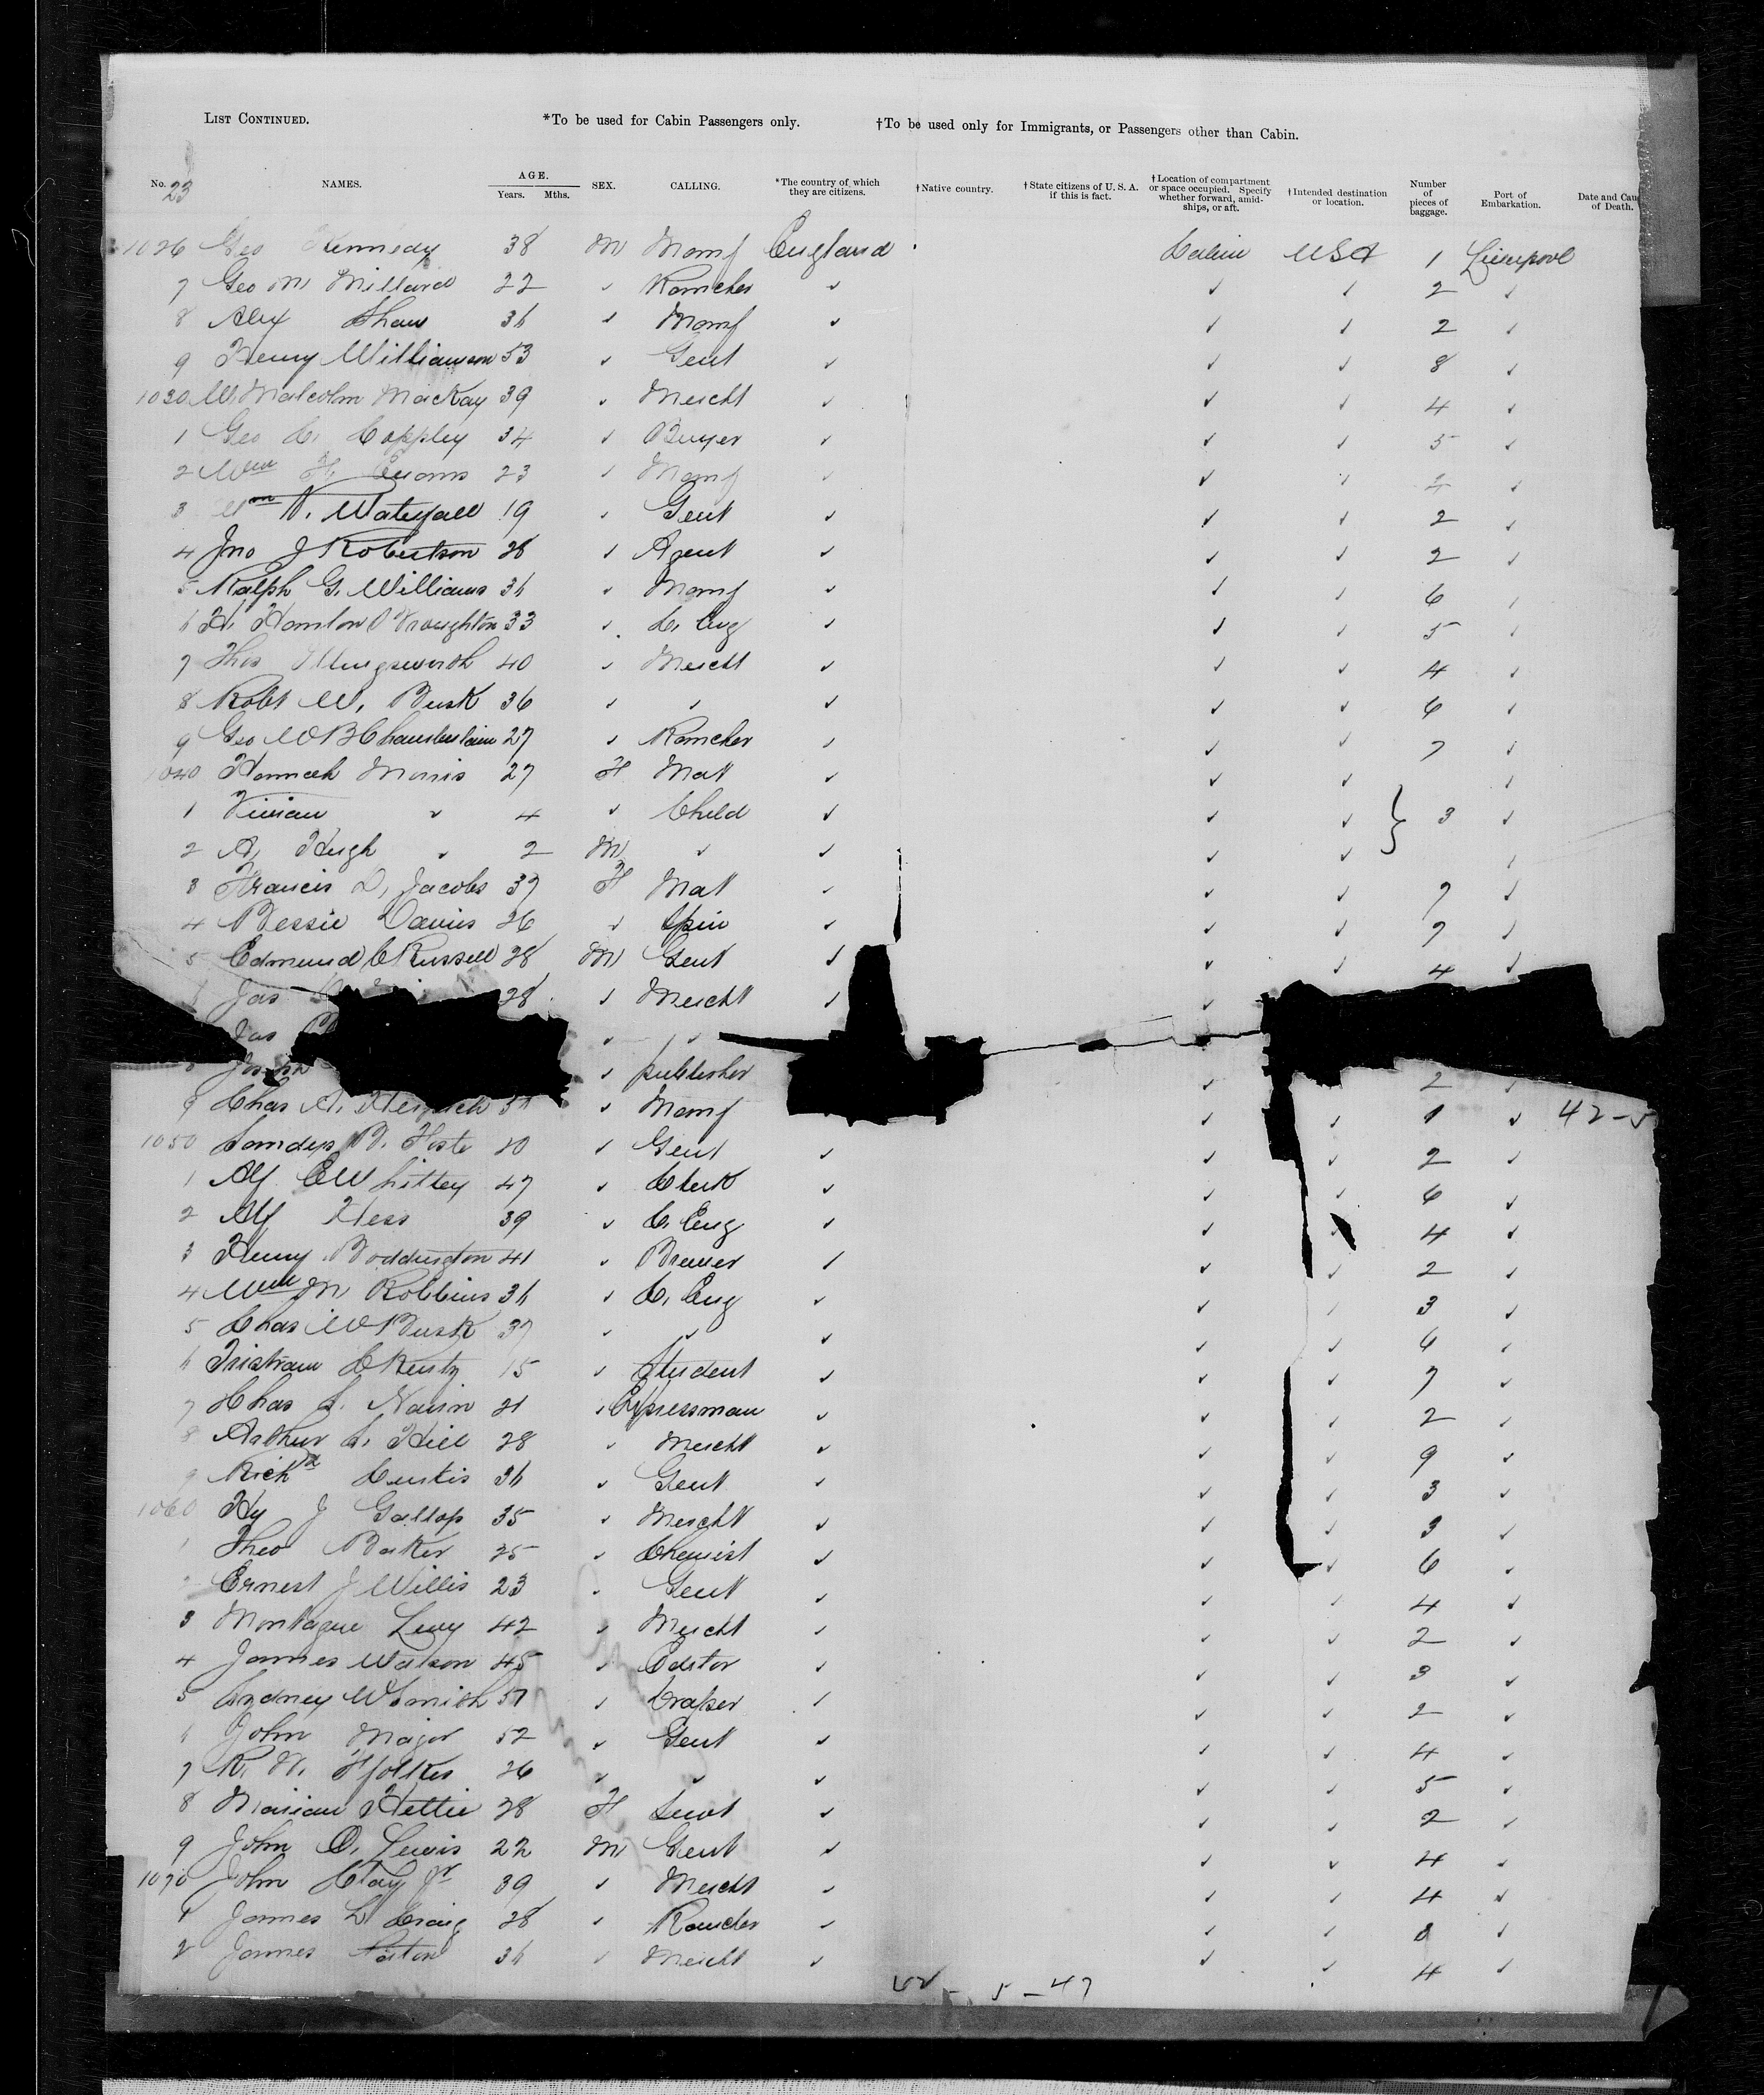 LIST CONTINUED. *To be used for Cabin Passengers only. †To be used only for Immigrants, or Passengers other than Cabin.
No. 23 NAMES. AGE. Years. Mths. SEX. CALLING. *The country of which they are citizens. †Native country. †State citizens of U. S. A. if this is fact. †Location of compartment or space occupied. Specify whether forward, amidships, or aft. †Intended destination or location. Number of pieces of baggage. Port of Embarkation. Date and Cau of Death.
1026 Geo Kennedy 38 M Manf England Cabin USA 1 Liverpool
7 Geo M Millard 22 ✓ Rancher ✓ ✓ ✓ 2 ✓
8 Alex Shaw 36 ✓ Manf ✓ ✓ ✓ 2 ✓
9 Henry Williamson 53 ✓ Gent ✓ ✓ ✓ 8 ✓
1030 W. Malcolm Mackay 39 ✓ Mercht ✓ ✓ ✓ 4 ✓
1 Geo C. Coppley 34 ✓ Buyer ✓ ✓ ✓ 5 ✓
2 Wm H. Evans 23 ✓ Manf ✓ ✓ ✓ ✓
3 Wm N. Waterfall 19 ✓ Gent ✓ ✓ ✓ 2 ✓
4 Jno J Robertson 28 ✓ Agent ✓ ✓ ✓ 2 ✓
5 Ralph G. Williams 36 ✓ Manf ✓ ✓ ✓ 6 ✓
6 H. 33 ✓ C. Eng ✓ ✓ ✓ 5 ✓
7 Thos Illingsworth 40 ✓ Mercht ✓ ✓ ✓ 4 ✓
8 Robt W. Busk 36 ✓ ✓ ✓ ✓ ✓ 6 ✓
9 Geo W B Chamberlain 27 ✓ Rancher ✓ ✓ ✓ 7 ✓
1040 Hannah Morris 27 F Mat ✓ ✓ ✓ ✓
1 Vivian ✓ 4 ✓ Child ✓ ✓ ✓ 3 ✓
2 A. Hugh ✓ 2 M ✓ ✓ ✓ ✓ ✓
3 Francis D. Jacobs 37 F Mat ✓ ✓ ✓ 7 ✓
4 Bessie Davies 26 ✓ Spin ✓ ✓ ✓ 7 ✓
5 Edmund C Russell 28 M Gent ✓ ✓ ✓ 4 ✓
6 Jas 28 ✓ Mercht ✓ ✓
Jas ✓ ✓
8 Joseph ✓ publisher ✓ 2 ✓
9 Chas A. ✓ Manf ✓ ✓ 1 ✓ 42-5
1050 B. 20 ✓ Gent ✓ ✓ ✓ 2 ✓
1 Alf E Whittey 47 ✓ Clerk ✓ ✓ ✓ 6 ✓
2 Alf Hess 39 ✓ C. Eng ✓ ✓ ✓ 4 ✓
3 Henry Boddington 41 ✓ Brewer ✓ ✓ ✓ 2 ✓
4 Wm M Robbins 36 ✓ C. Eng ✓ ✓ ✓ 3 ✓
5 Chas W Busk 37 ✓ ✓ ✓ ✓ ✓ 6 ✓
6 Tristram C 15 ✓ Student ✓ ✓ ✓ 7 ✓
7 Chas S. Nairn 21 ✓ Expressman ✓ ✓ ✓ 2 ✓
8 Arthur S. Hill 28 ✓ Mercht ✓ ✓ ✓ 9 ✓
9 Richd Curtis 36 ✓ Gent ✓ ✓ ✓ 3 ✓
1060 Hy J Gallop 35 ✓ Mercht ✓ ✓ ✓ 3 ✓
1 Theo Barker 25 ✓ Chemist ✓ ✓ ✓ 6 ✓
2 Ernest J Willis 23 ✓ Gent ✓ ✓ ✓ 4 ✓
3 Montague Levy 42 ✓ Mercht ✓ ✓ ✓ 2 ✓
4 James Watson 45 ✓ Editor ✓ ✓ ✓ 3 ✓
5 Sydney W Smith 57 ✓ Draper ✓ ✓ ✓ 2 ✓
6 John Major 52 ✓ Gent ✓ ✓ ✓ 4 ✓
7 R. N. 26 ✓ ✓ ✓ ✓ ✓ 5 ✓
8 Marian Hettie 28 F Servt ✓ ✓ ✓ 2 ✓
9 John O. Lewis 22 M Gent ✓ ✓ ✓ 4 ✓
1070 John Clay Jr 39 ✓ Mercht ✓ ✓ ✓ 4 ✓
1 James L Craig 28 ✓ Rancher ✓ ✓ ✓ ✓
2 James Paton 36 ✓ Mercht ✓ ✓ ✓ 4 ✓
5 - 47